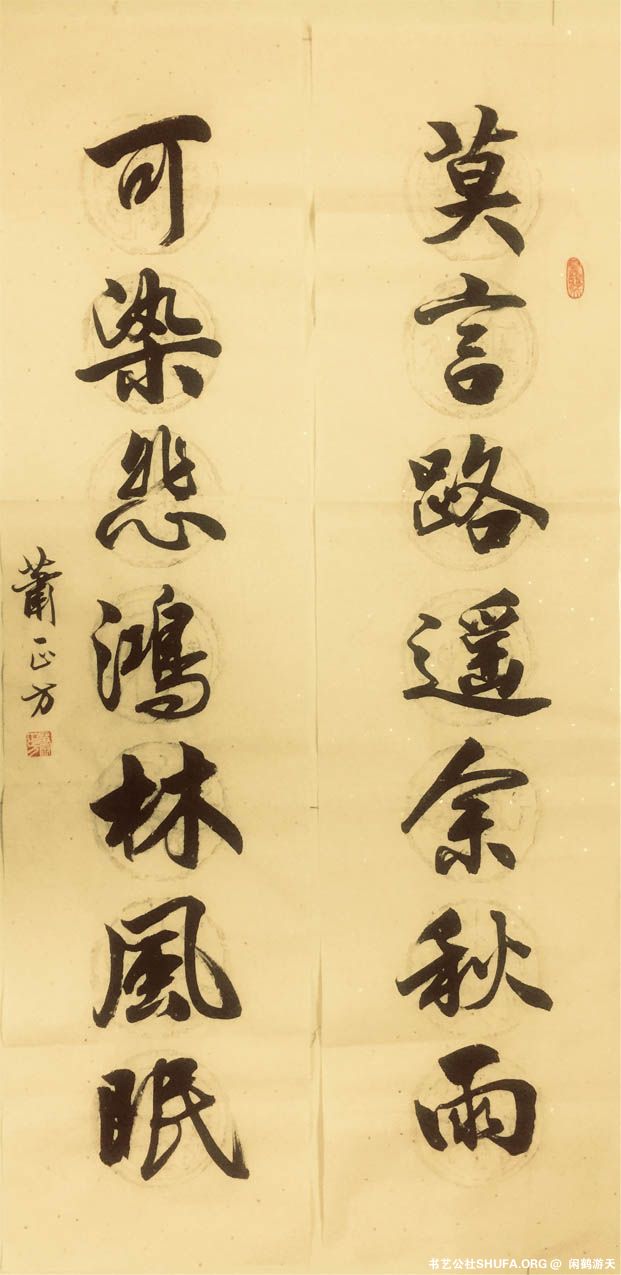 莫言路遙余秋雨
可染悲鴻林風眠
蕭正方
书艺公社SHUFA.ORG @ 闲鹤游天